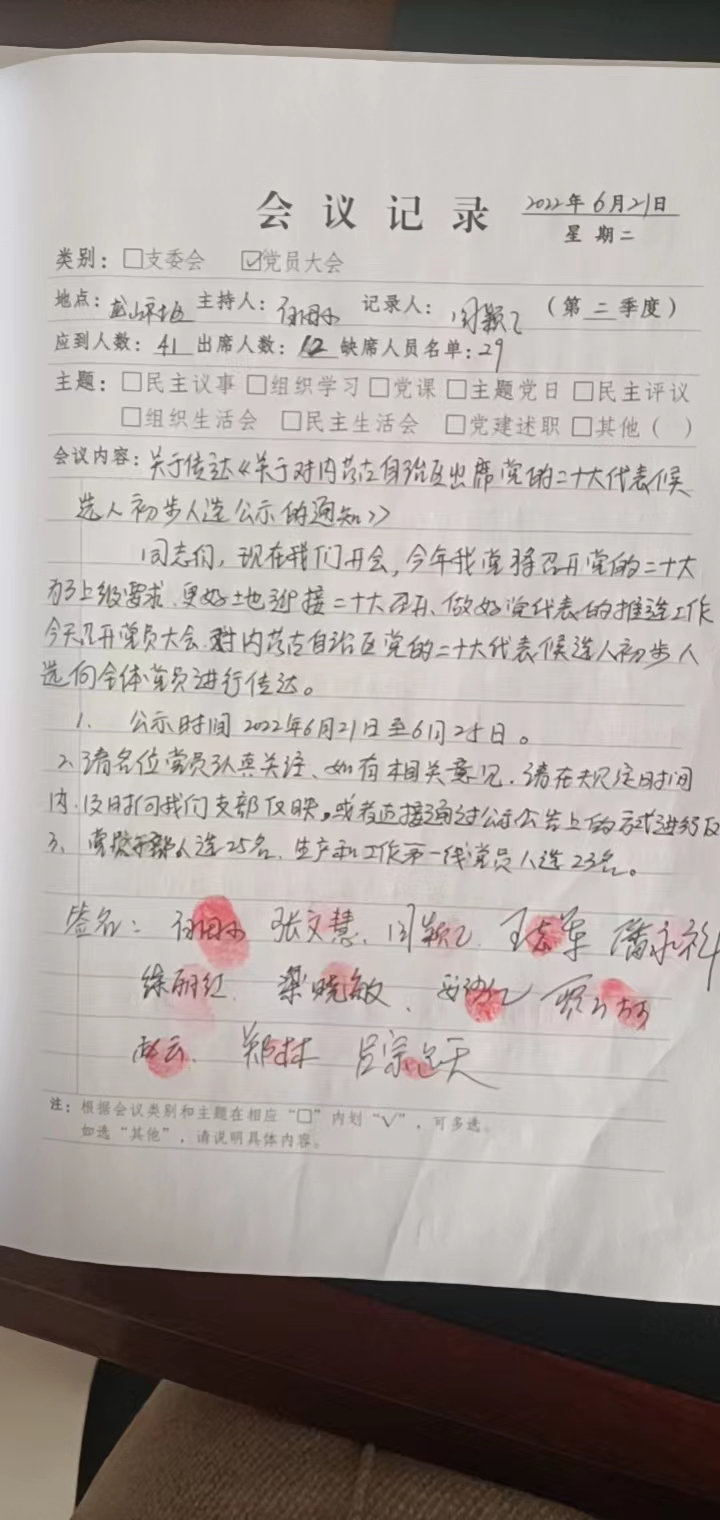 会议记录 2022年6月21日
星期二
类别：□支委会 ☑党员大会
地点： 主持人： 记录人：闫颖 （第二季度）
应到人数：41 出席人数：12 缺席人员名单：29
主题：□民主议事 □组织学习 □党课 □主题党日 □民主评议
□组织生活会 □民主生活会 □党建述职 □其他（ ）
会议内容：关于传达《关于对内蒙古自治区出席党的二十大代表候
选人初步人选公示的通知》
同志们，现在我们开会，今年我党将召开党的二十大
为了上级要求、更好土地迎接二十大召开、做好党代表的推选工作
今天召开党员大会.对内蒙古自治区党的二十大代表候选人初步人
选向全体党员进行传达。
1. 公示时间2022年6月21日至6月25日。
2、请各位党员认真关注、如有相关意见.请在规定时间
内.及时向我们支部反映。或者直接通过公示公告上的方式进行反
3、党员干部人选25名、生产和工作第一线党员人选23名。
签名： 张文慧、闫颖 王 军 潘永
徐丽红 梁晓敏、
赵云、郑林 吕宗
注：根据会议类别和主题在相应“□”内划“√”，可多选。
如选“其他”，请说明具体内容。